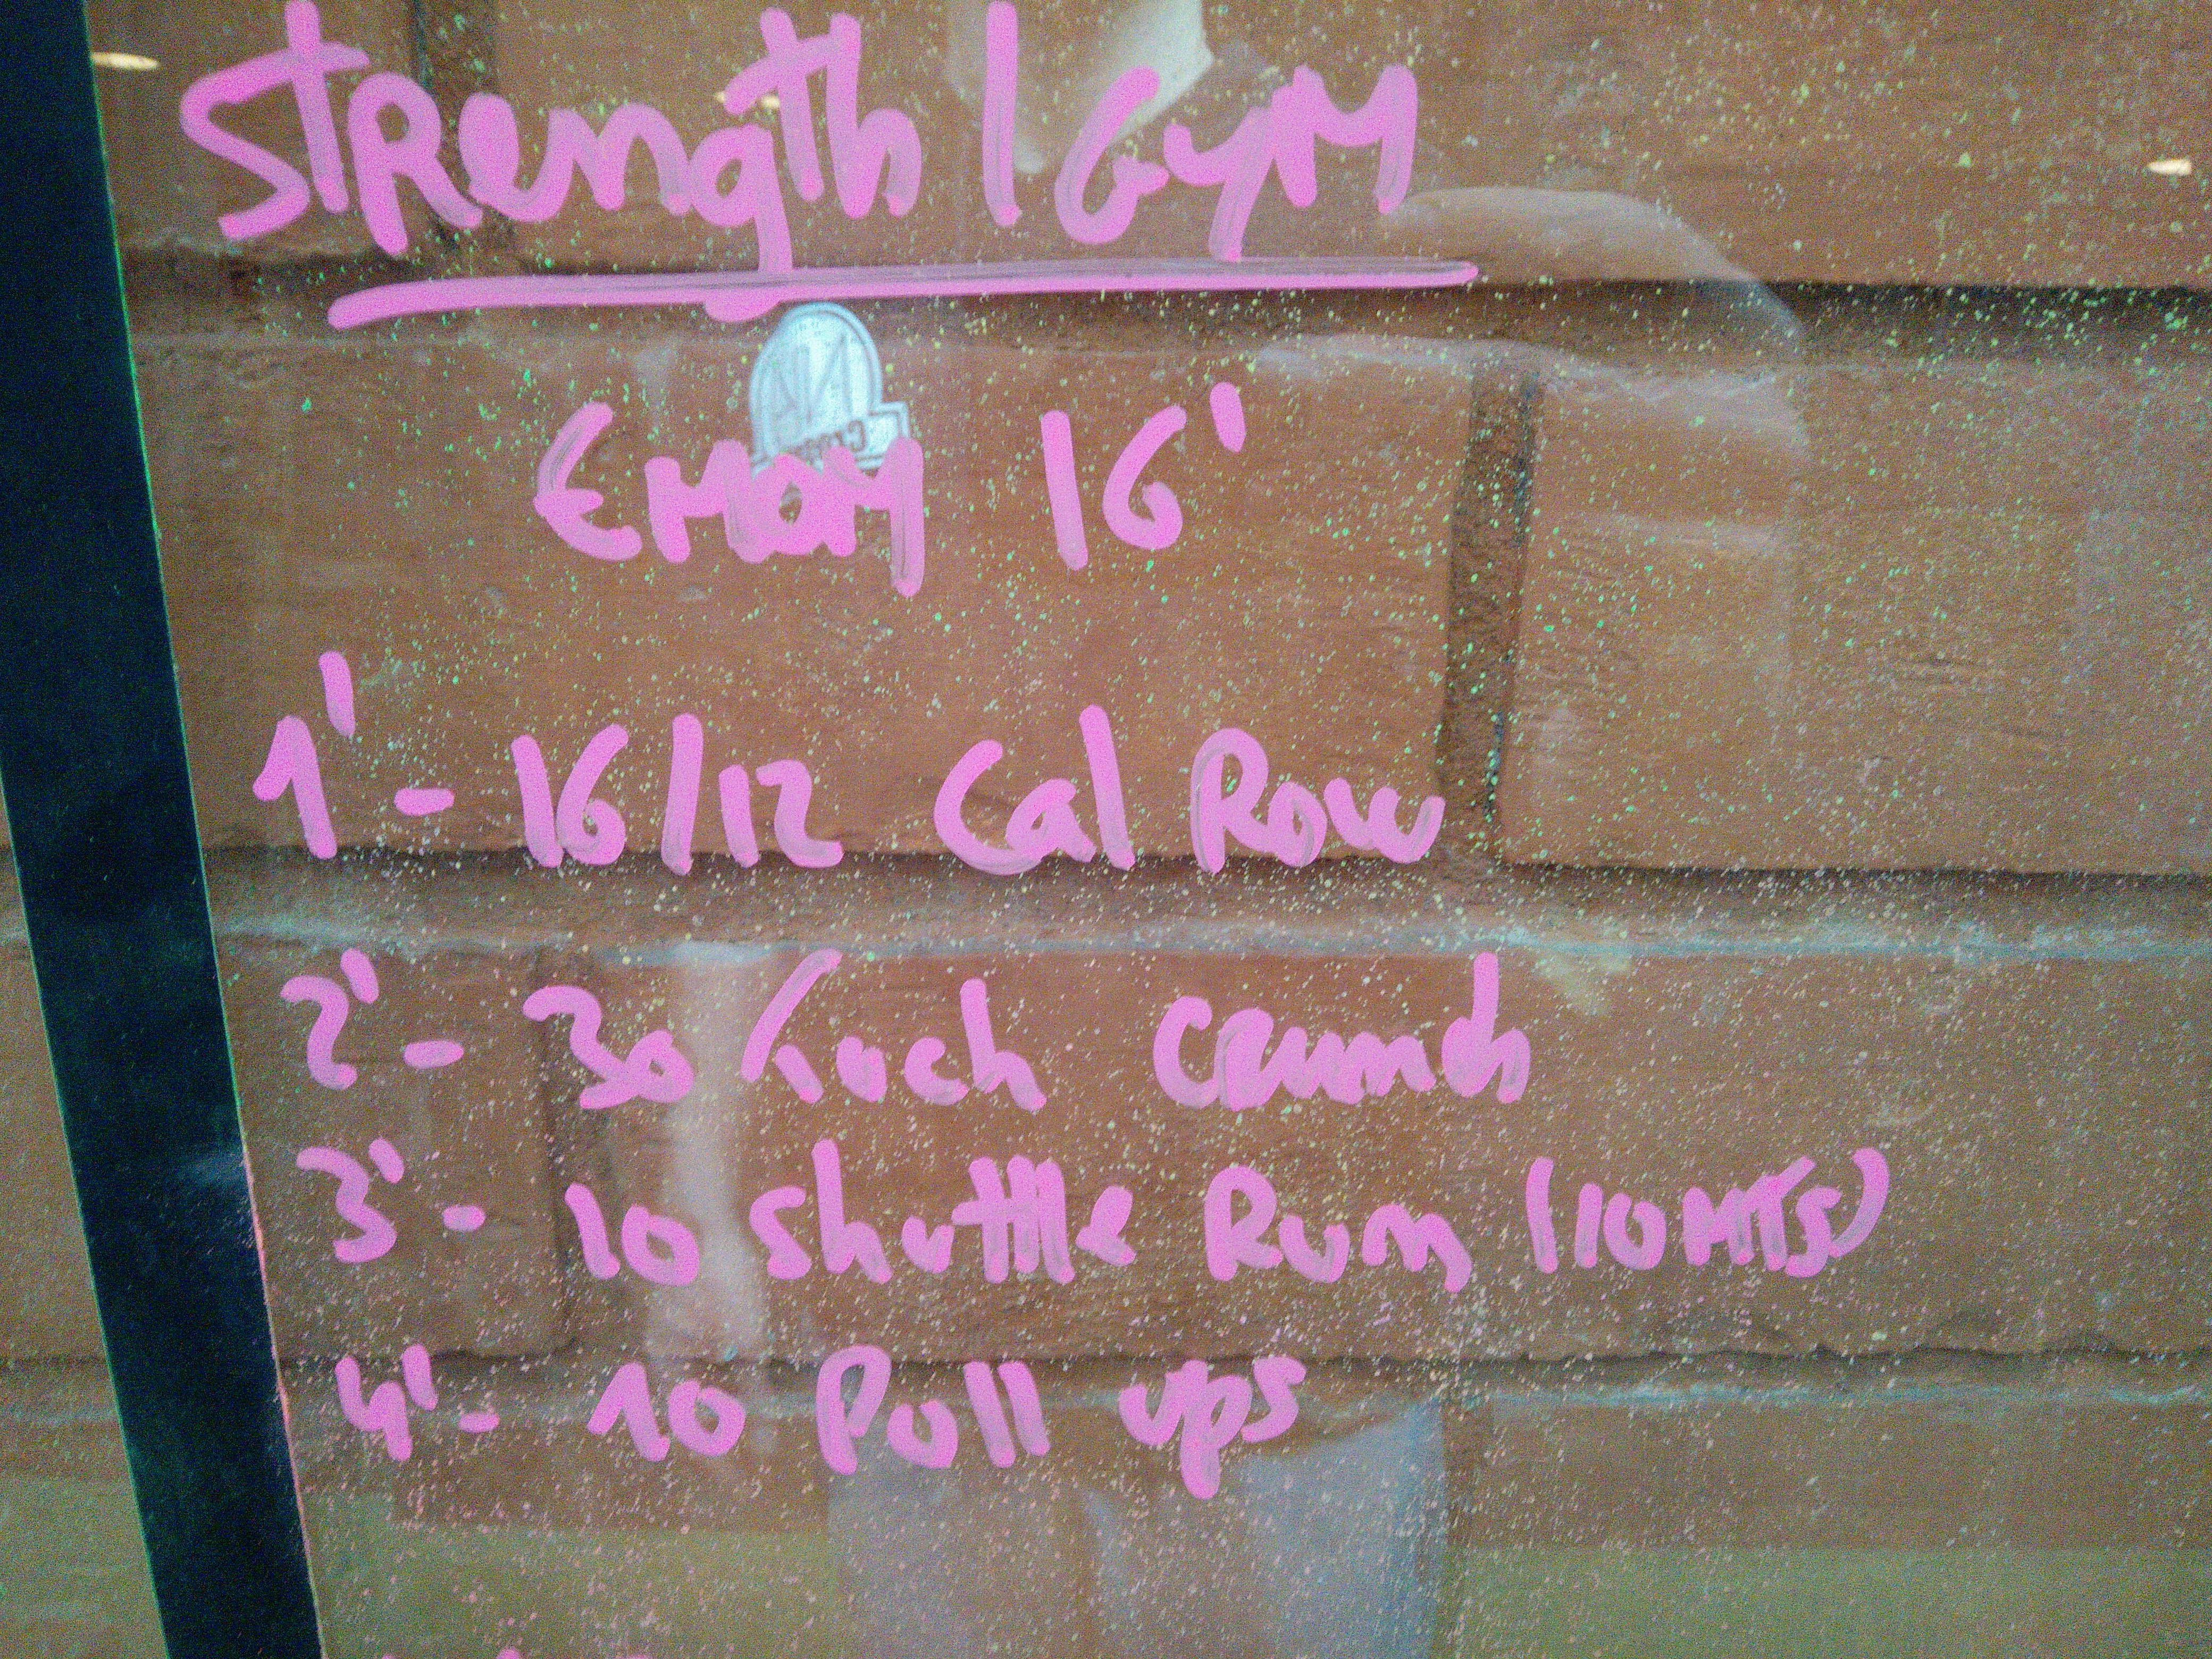 Strength | Gym
EMOM 16'
1' - 16/12 Cal Row
2' - 30 Tuch Crunch
3' - 10 shuttle Run (10 MTS)
4' - 10 Pull ups